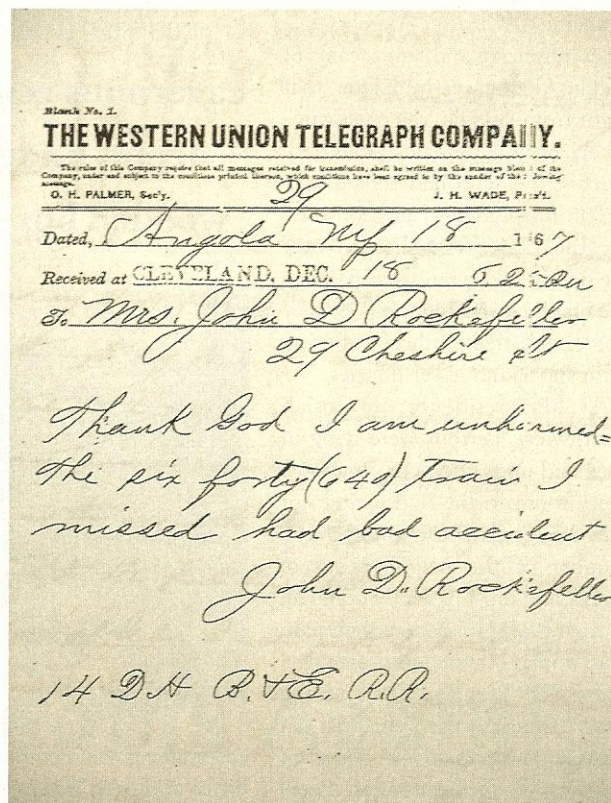 Blank No. 1.
THE WESTERN UNION TELEGRAPH COMPANY.
The rules of this Company require that all messages received for transmission, shall be written on the message blanks of the
Company, under and subject to the conditions printed thereon, which conditions have been agreed to by the sender of the following
message.
O. H. PALMER, Sec'y. 29 J. H. WADE, Pres't.
Dated, Angola 18 1867
Received at CLEVELAND, DEC. 18
To Mrs. John D Rockefeller
29 Cheshire St
Thank God I am unharmed=
the six forty (640) train I
missed had bad accident
John D. Rockefeller
14 DH B. & E. R.R.